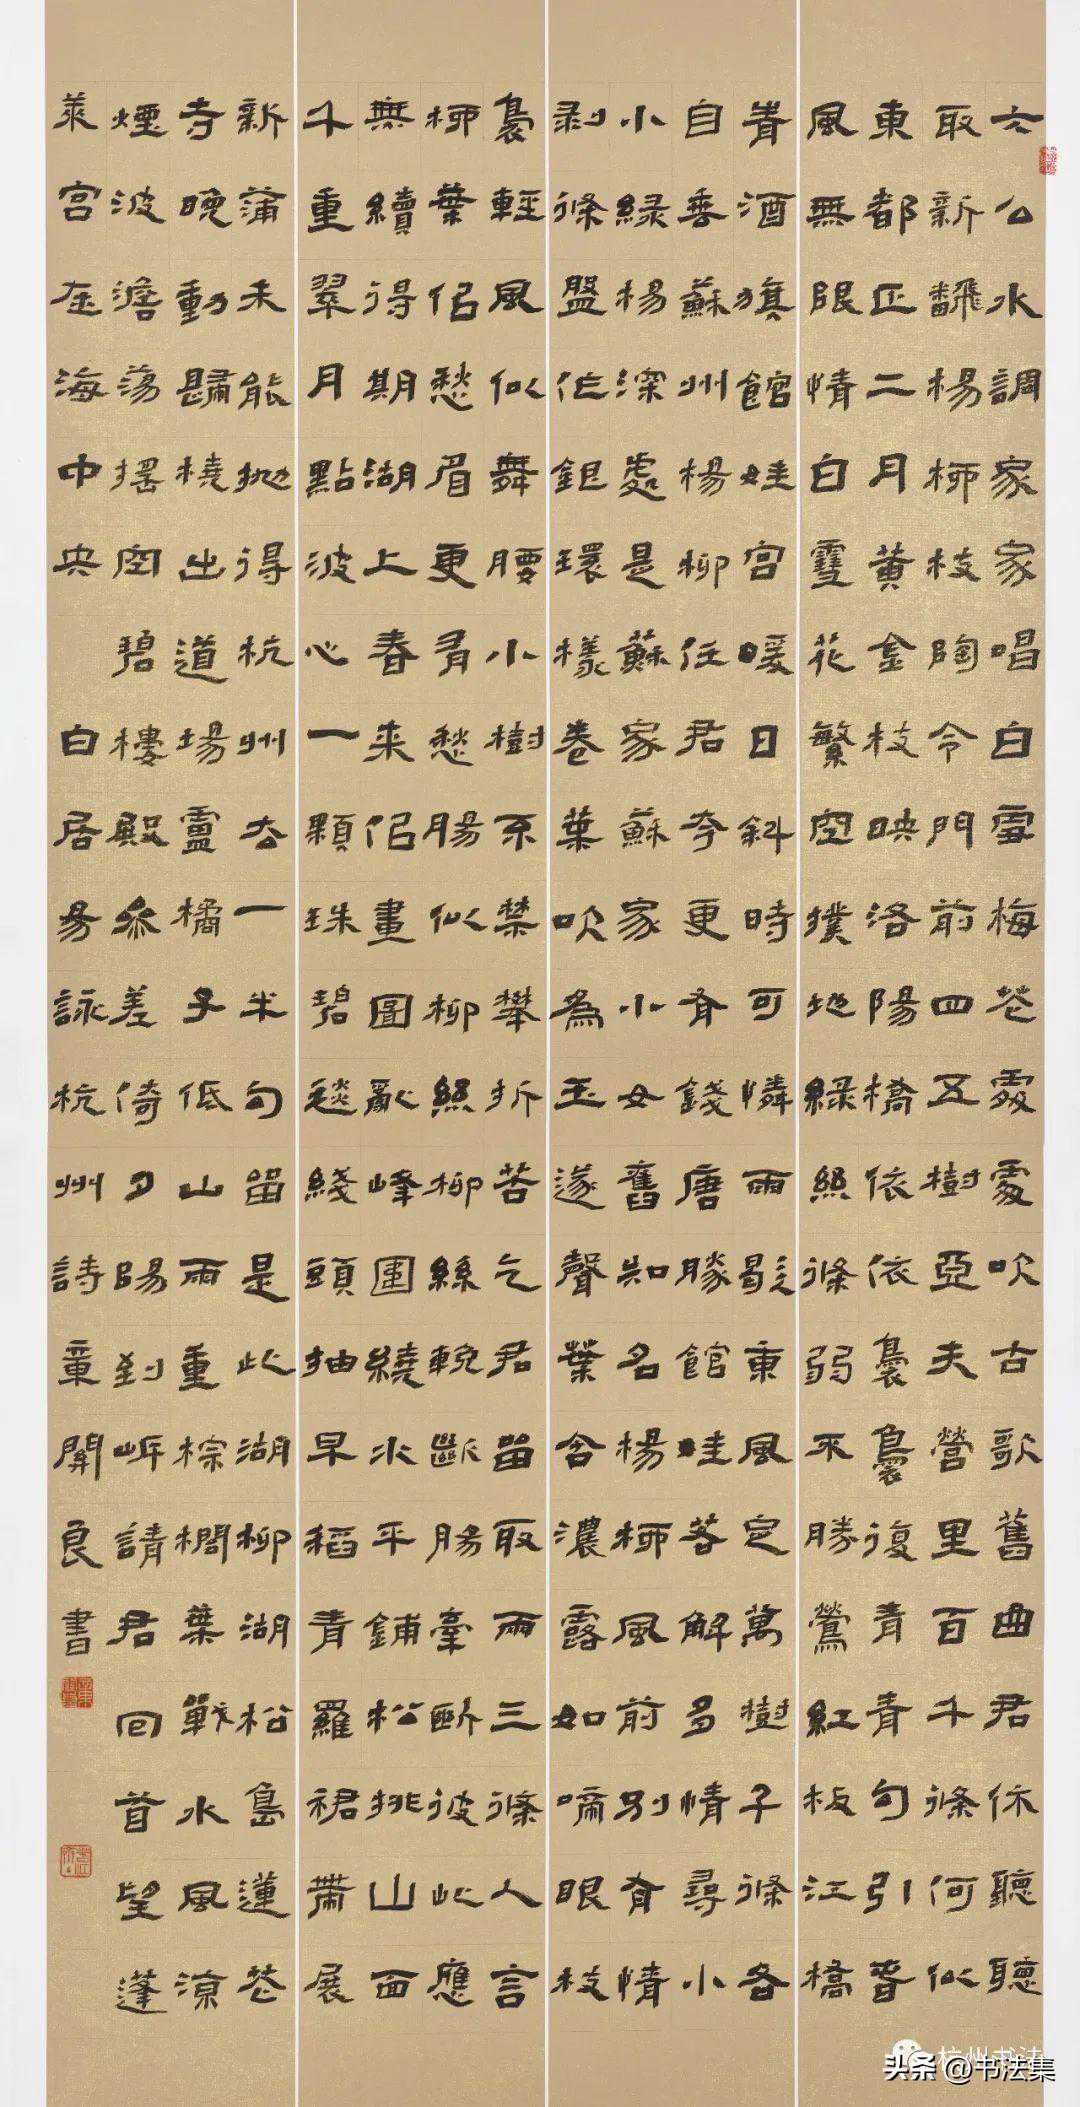 六么水調家家唱白雪梅花處處吹古歌舊曲君休聽聽
取新飜楊柳枝陶令門前四五樹亞夫營里百千條何似
東都正二月黃金枝映洛陽橋依依裊裊復青青句引春
風無限情白雪花繁空撲地綠絲條弱不勝鶯紅板江橋
青酒旗館娃宮暖日斜時可憐雨歇東風定萬樹千條各
自垂蘇州楊柳任君夸更有錢唐勝館娃若解多情尋小
小綠楊深處是蘇家蘇家小女舊知名楊柳風前別有情
剝條盤作銀環樣卷葉吹為玉篴聲葉含濃露如啼眼枝
裊輕風似舞腰小樹不禁攀折苦乞君留取兩三條人言
柳葉似愁眉更有愁腸似柳絲柳絲輓斷腸牽斷彼此應
無續得期湖上春來似畫圖亂峰圍繞水平鋪松排山面
千重翠月點波心一顆珠碧毯綫頭抽早稻青羅裙帶展
新蒲未能拋得杭州去一半勾留是此湖柳湖松島蓮花
寺晚動歸橈出道場盧橘子低山雨重棕櫚葉戰水風涼
煙波澹蕩搖空碧樓殿參差倚夕陽到岸請君回首望蓬
萊宮在海中央 白居易詠杭州詩章關良書
杭州书法
头条 @书法集